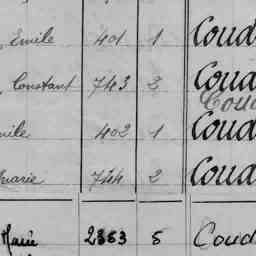 Emile 401 1 Coud
Constant 743 2 Coud
Coud
mile 402 1 Coud
marie 744 2 Coud
Marie 2363 5 Coud